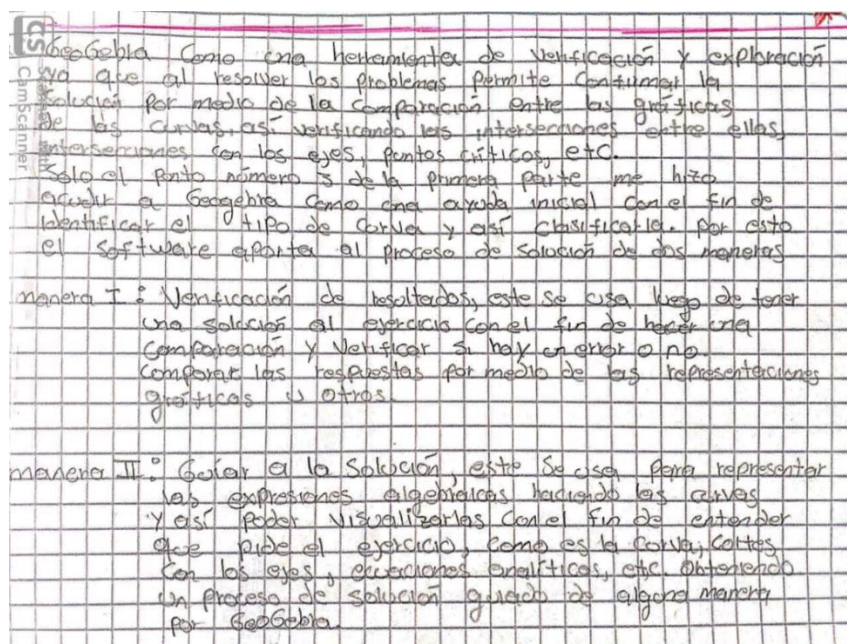 CS CamScanner
GeoGebra como una herramienta de verificación y exploración
ya que al resolver los problemas permite confirmar la
solución por medio de la comparación entre las gráficas
de las curvas, así verificando las intersecciones entre ellas,
intersecciones con los ejes, puntos críticos, etc.
Solo el punto número 3 de la primera parte me hizo
acudir a Geogebra como una ayuda inicial con el fin de
identificar el tipo de curva y así clasificarla. Por esto
el software aporta al proceso de solución de dos maneras
manera I : Verificación de resultados, este se usa luego de tener
una solución al ejercicio con el fin de hacer una
comparación y verificar si hay un error o no.
comparar las respuestas por medio de las representaciones
gráficas u otros.
manera II : Guiar a la solución, este se usa para representar
las expresiones algebraicas haciendo las curvas
y así poder visualizarlas con el fin de entender
que pide el ejercicio, como es la curva, cortes
con los ejes, ecuaciones analíticas, etc. Obteniendo
un proceso de solución guiado de alguna manera
por GeoGebra.